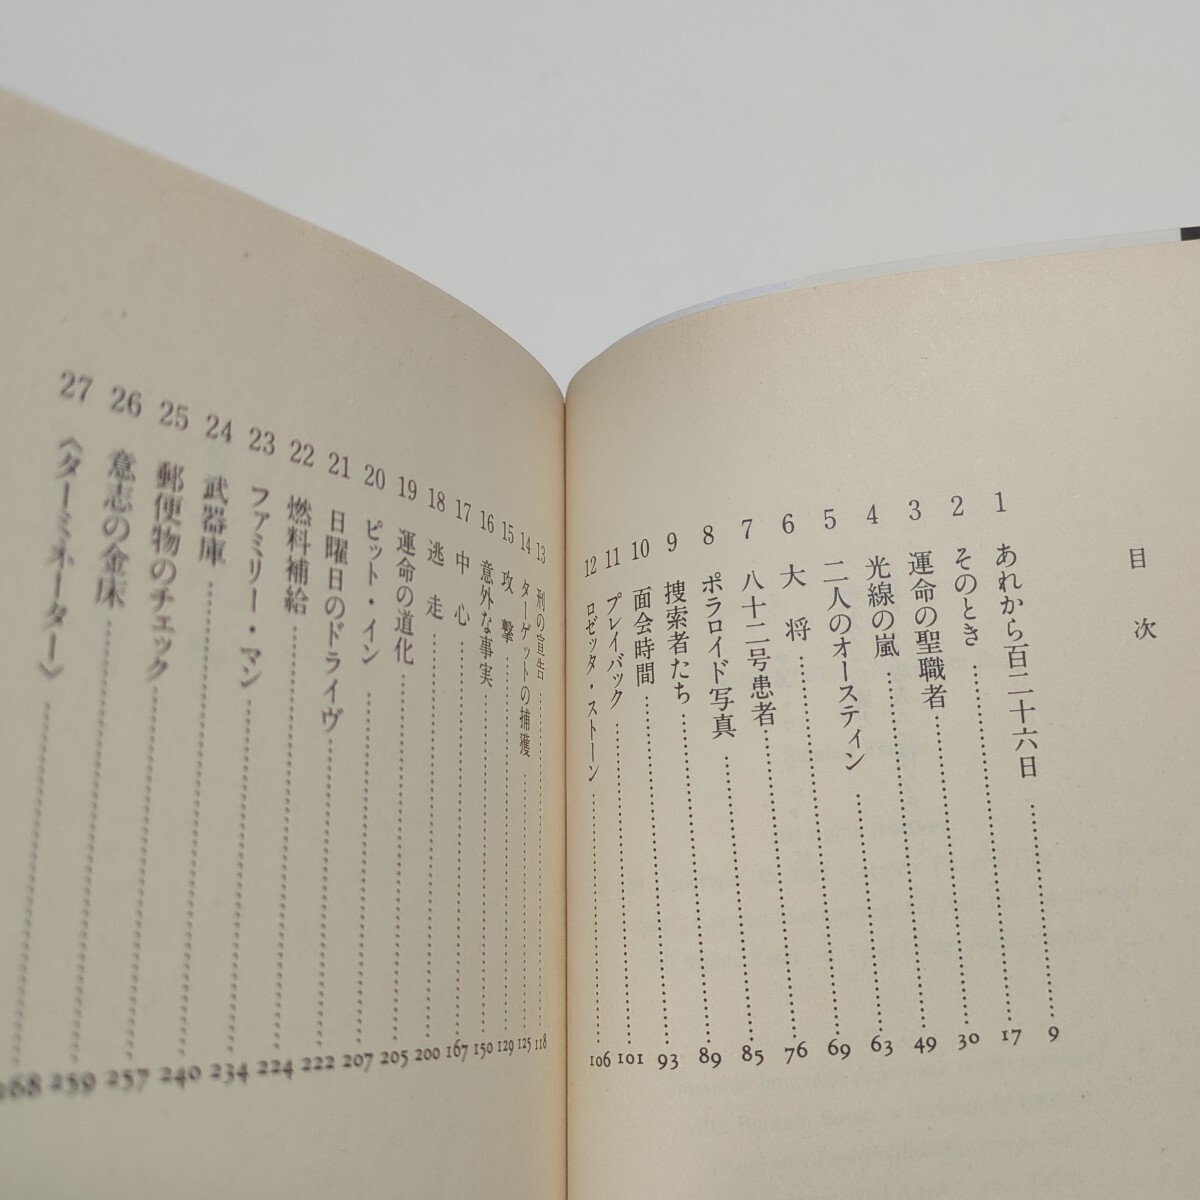 目次
1 あれから百二十六日 9
2 そのとき 17
3 運命の聖職者 30
4 光線の嵐 49
5 二人のオースティン 63
6 大将 69
7 八十二号患者 76
8 ポラロイド写真 85
9 捜索者たち 89
10 面会時間 93
11 プレイバック 101
12 ロゼッタ・ストーン 106
13 刑の宣告 118
14 ターゲットの捕獲 125
15 攻撃 129
16 意外な事実 150
17 中心 167
18 逃走 200
19 運命の道化 205
20 ピット・イン 207
21 日曜日のドライヴ 222
22 燃料補給 224
23 ファミリー・マン 234
24 武器庫 240
25 郵便物のチェック 257
26 意志の金床 259
27 〈ターミネーター〉 268